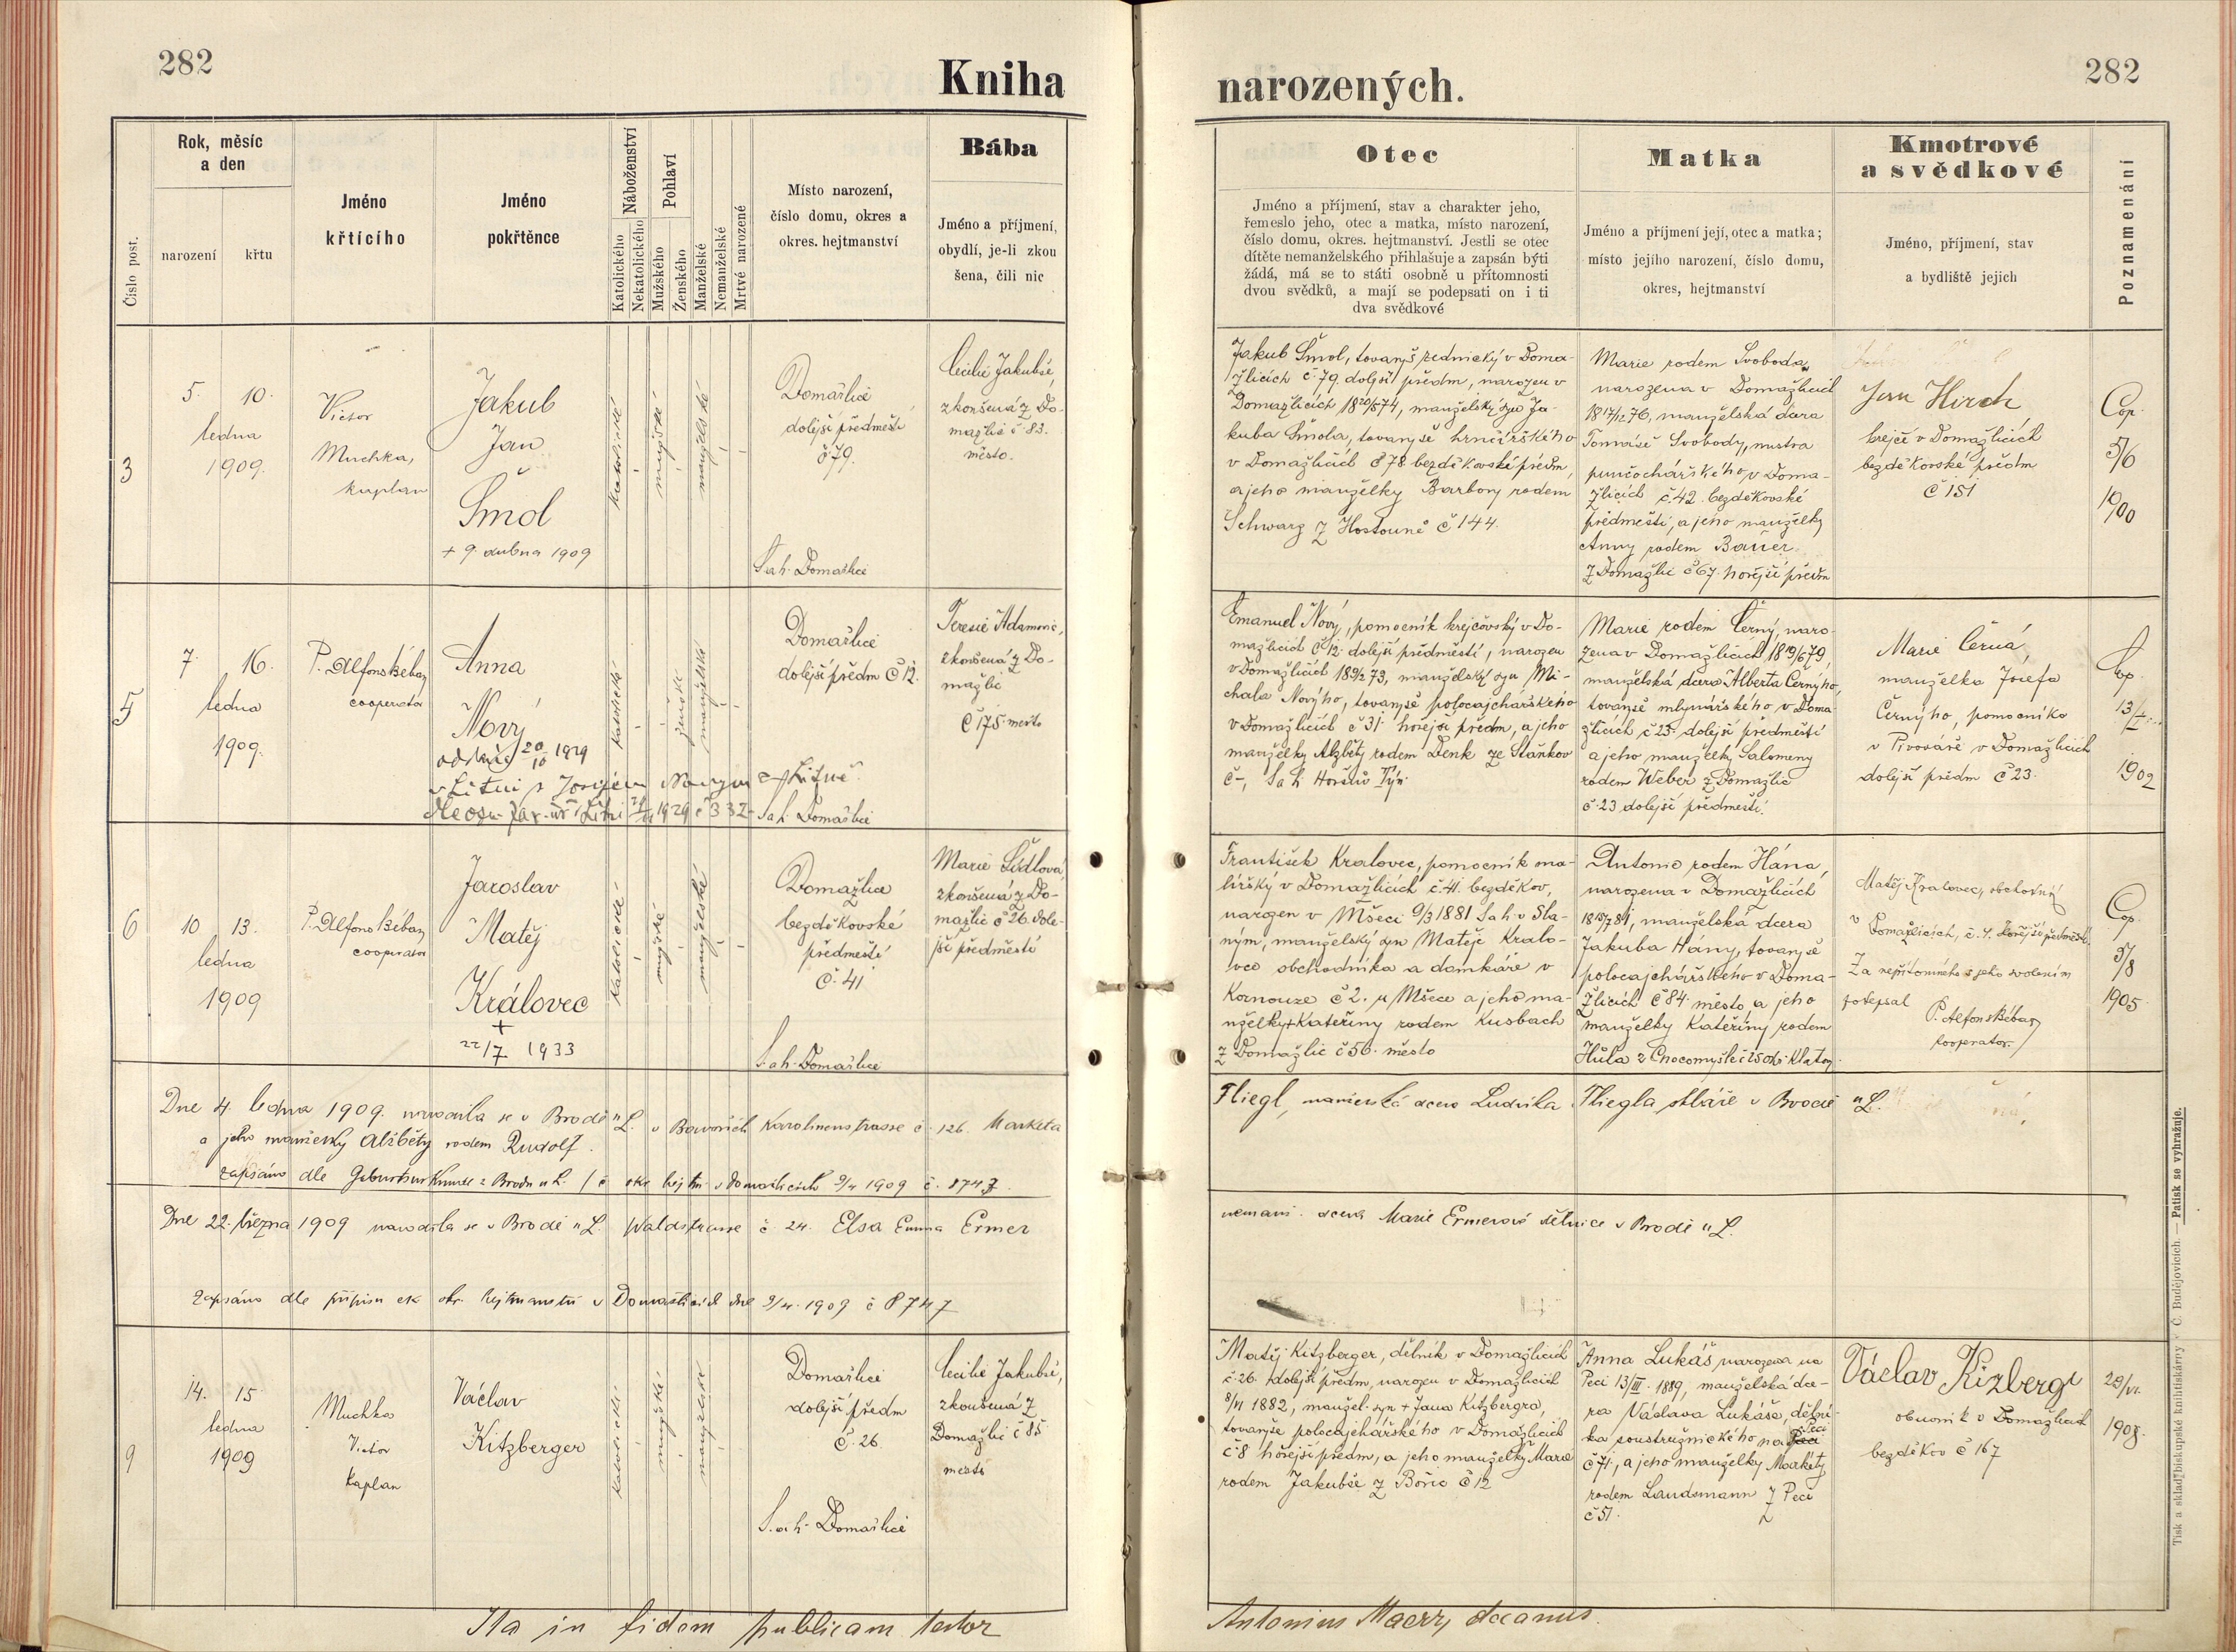 282
Kniha
Číslo post.
Rok, měsíc
a den
narození
křtu
Jméno
křtícího
Jméno
pokřtěnce
Náboženství
Katolického
Nekatolického
Pohlaví
Mužského
Ženského
Manželské
Nemanželské
Mrtvé narozené
Místo narození,
číslo domu, okres a
okres. hejtmanství
Bába
Jméno a příjmení,
obydlí, je-li zkou
šena, čili nic
3
5. 10.
ledna
1909.
Victor
Muchka,
kaplan
Jakub
Jan
Šmol
+ 9. dubna 1909
katolické
mužské
manželské
Domažlice
dolejší předměstí
č 79.
S. a h. Domažlice
Cecilie Jakubše,
zkoušená z Do-
mažlic č. 83.
město.
5
7. 16.
ledna
1909.
P. Alfons Béban
cooperator
Anna
Nový
oddána 20/10 1929
v Litni s Josefem
katolické
ženské
manželské
Domažlice
dolejší předm č 12.
S. a h. Domažlice
Teresie Adamovic,
zkoušená z Do-
mažlic
č 175 město
6
10 13.
ledna
1909
P. Alfons Béban
cooperator
Jaroslav
Matěj
Královec
+
22/7 1933
katolické
mužské
manželské
Domažlice
bezděkovské
předměstí
č. 41
S. a h. Domažlice
Marie Šidlová,
zkoušená z Do-
mažlic č 26. dole-
jší předměstí
Dne 4. ledna 1909. narodila se v Brodě n L. v Bavořích Karolinenstrasse č. 126. Markéta
a jeho manželky Alžběty rodem Rudolf.
zapsáno dle Geburtsurkunde z Brodu n L. / č okr hejtm v Domažlicích 9/4 1909 č. 8747.
Dne 22. března 1909 narodila se v Brodě n L. Waldstrasse č 24. Elsa Emma Ermer
Zapsáno dle přípisu ck okr. hejtmanství v Domažlicích dne 9/4. 1909 č 8747
9
14. 15
ledna
1909
Muchka
Victor
kaplan
Václav
Kitzberger
katolické
mužské
manželské
Domažlice
dolejší předm
č. 26.
S. a h. Domažlice
Cecilie Jakubše,
zkoušená z
Domažlic č 85
město
Ita in fidem publicam testor
282
narozených.
Otec
Jméno a příjmení, stav a charakter jeho,
řemeslo jeho, otec a matka, místo narození,
číslo domu, okres. hejtmanství. Jestli se otec
dítěte nemanželského přihlašuje a zapsán býti
žádá, má se to státi osobně u přítomnosti
dvou svědků, a mají se podepsati on i ti
dva svědkové
Matka
Jméno a příjmení její, otec a matka;
místo jejího narození, číslo domu,
okres, hejtmanství
Kmotrové
a svědkové
Jméno, příjmení, stav
a bydliště jejich
Poznamenání
Jakub Šmol, tovaryš zednický v Doma-
žlicích č 79. dolejší předm, narozen v
Domažlicích 18 20/5 74, manželský syn Ja-
kuba Šmola, tovaryše hrnčířského
v Domažlicích č 78 bezděkovské předm,
a jeho manželky Barbory rodem
Schwarz z Hostouně č 144.
Marie rodem Svoboda,
narozena v Domažlicích
18 17/12 76, manželská dcera
Tomáše Svobody, mistra
punčochářského v Doma-
žlicích č. 42. bezděkovské
předměstí, a jeho manželky
Anny rodem Bauer
z Domažlic č 67. hořejší předm
Jan Hirch,
krejčí v Domažlicích
bezděkovské předm
č 151
Cop.
5/6
1900
Emanuel Nový, pomocník krejčovský v Do-
mažlicích č 12. dolejší předměstí, narozen
v Domažlicích 73, manželský syn Mi-
chala Nového, tovaryše polocajchářského
v Domažlicích č 31 hořejší předm, a jeho
manželky Alžběty rodem Denk ze Staňkov
č -, S a h. Horšův Týn.
Marie rodem Černý, naro-
zena v Domažlicích 18 19/6 79,
manželská dcera Alberta Černýho,
tovaryše mlynářského v Doma-
žlicích č 23. dolejší předměstí
a jeho manželky Salomeny
rodem Weber z Domažlic
č 23 dolejší předměstí.
Marie Černá,
manželka Josefa
Černýho, pomocníka
v Pivováře v Domažlicích
dolejší předm č 23.
Cop.
1902
František Kralovec, pomocník ma-
lířský v Domažlicích č. 41. bezděkov,
narozen v Mšeci 9/3 1881 S a h. v Sla-
ným, manželský syn Matěje Kralo-
vce obchodníka a domkáře v
Kornouze č 2. u Mšece a jeho ma-
nželky + Kateřiny rodem Kusbach
z Domažlic č 56. město
Antonie rodem Hána,
narozena v Domažlicích
18 81, manželská dcera
Jakuba Hány, tovaryše
polocajchářského v Doma-
žlicích č 84. město, a jeho
manželky Kateřiny rodem
Hůla z Chocomyšle č 25 okr Klatov.
Matěj Kralovec, obchodník
v Domažlicích, č. 4. hořejší předměstí.
Za nepřítomného s jeho svolením
potepsal
P. Alfons Béban
kooperator.
Cop.
5/8
1905
Fliegl, manželská dcera Ludvíka Fliegla skláře v Brodě n L.
nemanž. dcera Marie Ermerové dělnice v Brodě n L.
Matěj Kitzberger, dělník v Domažlicích
č. 26. dolejší předm, narozen v Domažlicích
8/VI 1882, manžel. syn + Jana Kitzbergra,
tovaryše polocajchářského v Domažlicích
č 8 hořejší předm, a jeho manželky Marie
rodem Jakubše z Bořic č 12
Anna Lukáš narozena na
Peci 13/III. 1889, manželská dce-
ra Václava Lukáše, dělní-
ka soustružnického na Peci
č 71, a jeho manželky Markéty
rodem Landsmann z Peci
č 51.
Václav Kizbergr
obuvník v Domažlicích
bezděkov č 167
28/VI.
1908.
Antonius Maerz decanus.
Tisk a sklad biskupské knihtiskárny v Č. Budějovicích. — Patisk se vyhražuje.